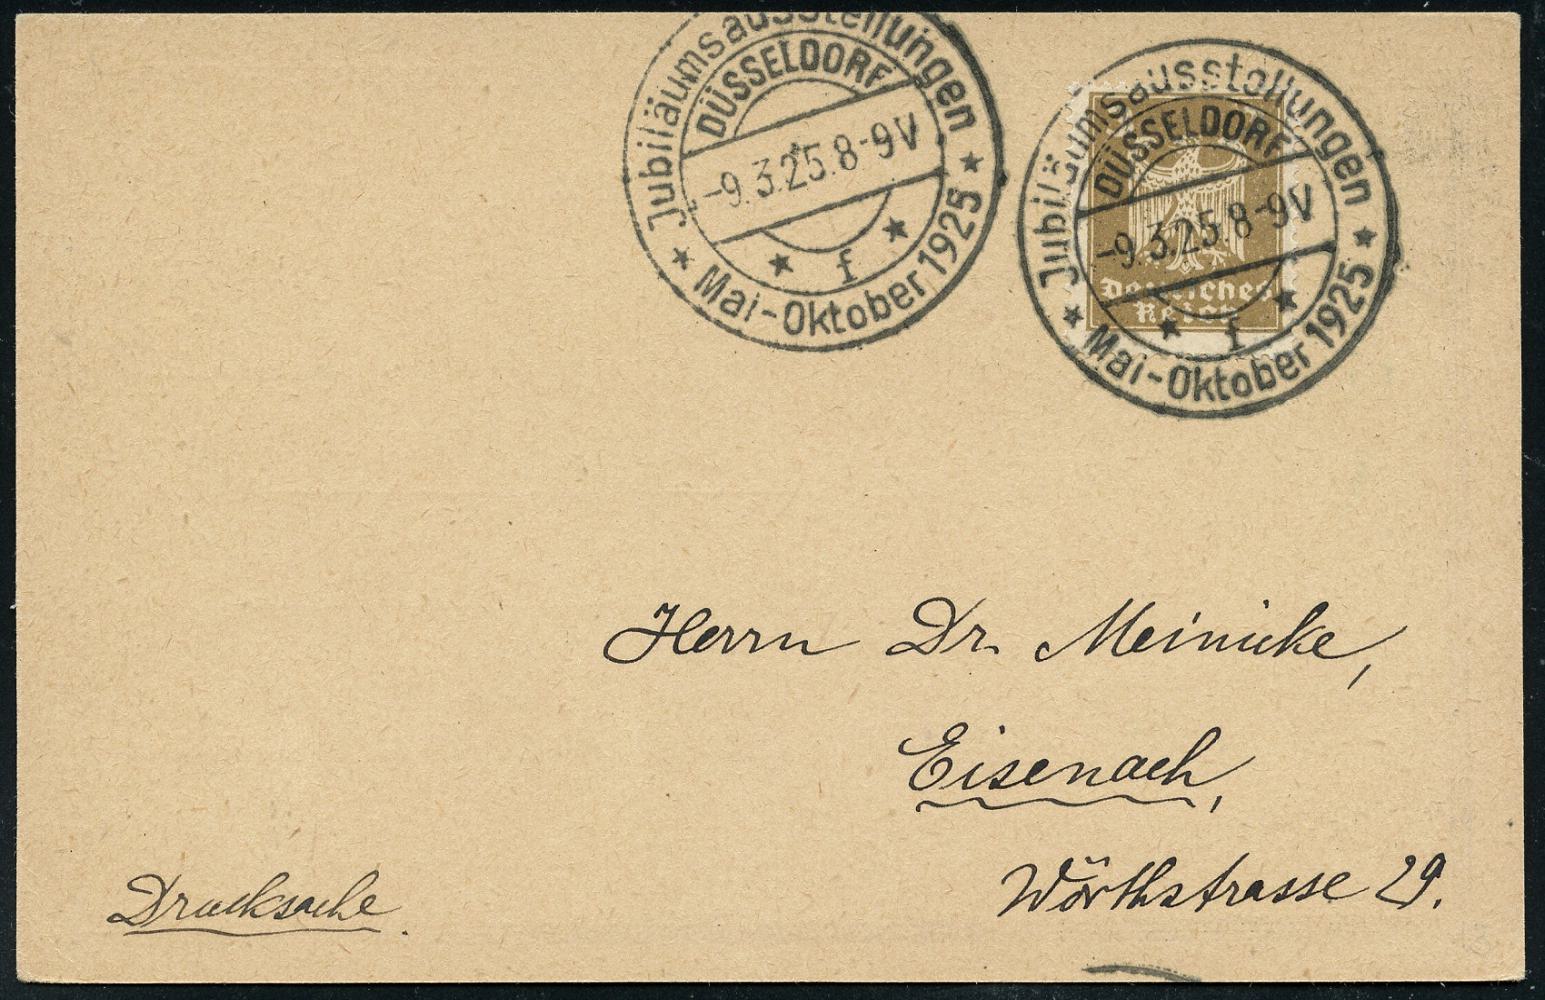 Jubiläumsausstellungen
DÜSSELDORF
-9.3.25.8-9V
★ ★ f ★ ★
Mai-Oktober 1925
Jubiläumsausstellungen
DÜSSELDORF
-9.3.25.8-9V
★ ★ f ★ ★
Mai-Oktober 1925
Deutsches
Reich
Herrn Dr. Meinicke,
Eisenach,
Wörthstrasse 29.
Drucksache.